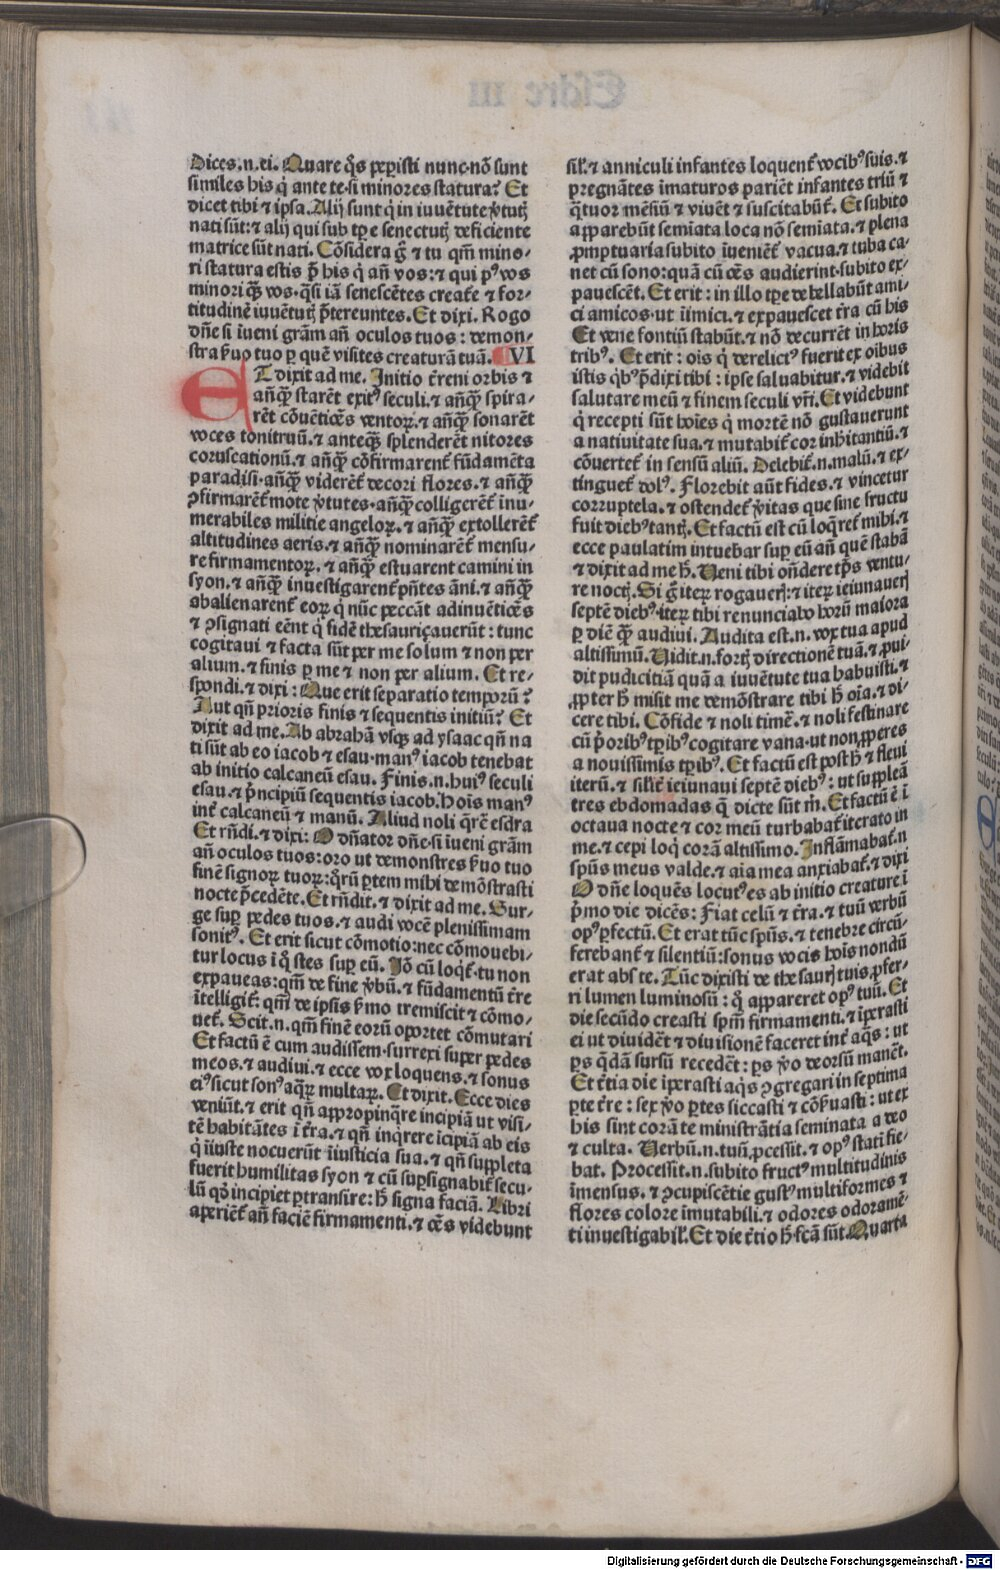 Dices.n.ei. Quare q̊s peꝑisti nunc·nō sunt
similes his q̇ ante te·si minores statura? Et
dicet tibi ⁊ ipsa. Alij sunt q̇ in iuuētute v̓tutꝭ
nati sūt:⁊ alij qui sub tꝑe senectutꝭ deficiente
matrice sūt nati. Cōsidera g̊ ⁊ tu qm̄ mino⸗
ri statura estis p̄ his q̇ añ vos:⁊ qui pꝰ vos
minori qꝫ̄ vos·q̈si iā senescētes creat̄e ⁊ for⸗
titudinē iuuētutꝭ p̄tereuntes. Et dixi. Rogo
dn̄e si iueni grām añ oculos tuos : demon⸗
stra ẜuo tuo ꝑ quē visites creaturā tuā. VI
ET dixit ad me. Initio t̄reni orbis ⁊
añqꝫ̄ starēt exitꝰ seculi.⁊ añqꝫ̄ spira⸗
rēt cōuētiōes ventoꝝ.⁊ añqꝫ̄ sonarēt
voces tonitruū.⁊ anteqꝫ̄ splenderēt nitores
coruscationū.⁊ añqꝫ̄ cōfirmarent̄ fūdamēta
paradisi·añqꝫ̄ viderēt̄ decori flores.⁊ añqꝫ̄
ꝯfirmarēt̄ mote v̓tutes·añqꝫ̄ colligerēt̄ inu⸗
merabiles militie angeloꝝ.⁊ añqꝫ̄ extollerēt̄
altitudines aeris.⁊ añqꝫ̄ nominarēt̄ mensu⸗
re firmamentoꝝ. ⁊ añqꝫ̄ estuarent camini in
syon.⁊ añqꝫ̄ inuestigarent̄ pn̄tes āni.⁊ añqꝫ̄
abalienarent̄ eoꝝ q̇ nūc peccāt adinuētiōes
⁊ ꝯsignati eēnt q̇ fidē thesauriçauerūt : tunc
cogitaui ⁊ facta sūt per me solum ⁊ non per
alium.⁊ finis ꝑ me ⁊ non per alium. Et re⸗
spondi.⁊ dixi : Que erit separatio temporū?
Aut qn̄ prioris finis ⁊ sequentis initiū? Et
dixit ad me. Ab abrahā vsqꝫ ad ysaac qn̄ na
ti sūt ab eo iacob ⁊ esau·manꝰ iacob tenebat
ab initio calcaneū esau. Finis.n.huiꝰ seculi
esau.⁊ p̓ncipiū sequentis iacob.hoīs manꝰ
int̄ calcaneū ⁊ manū. Aliud noli q̄rē esdra
Et rn̄di.⁊ dixi: O dn̄ator dn̄e·si iueni grām
añ oculos tuos:oro ut demonstres ẜuo tuo
finē signoꝝ tuoꝝ:q̊rū ꝑtem mihi demōstrasti
nocte p̄cedēte. Et rn̄dit.⁊ dixit ad me. Sur⸗
ge suꝑ pedes tuos.⁊ audi vocē plenissimam
sonitꝰ. Et erit sicut cōmotio:nec cōmouebi⸗
tur locus i q̊ stes suꝑ eū. Iō cū loqt̄·tu non
expaueas:qm̄ de fine v̓bū.⁊ fūdamentū t̄re
ītelligit̄: qm̄ de ipsis ẜmo tremiscit ⁊ cōmo⸗
uet̄. Scit.n.qm̄ finē eorū oportet cōmutari
Et factū ē cum audissem·surrexi super pedes
meos.⁊ audiui.⁊ ecce vox loquens.⁊ sonus
eiꝰ sicut sonꝰ aqꝝ multaꝝ. Et dixit. Ecce dies
veniūt.⁊ erit qn̄ appropinq̈re incipiā ut visi⸗
tē habitātes i t̄ra.⁊ qn̄ inq̇rere icipiā ab eis
q̇ iiuste nocuerūt iiusticia sua.⁊ qn̄ suppleta
fuerit humilitas syon ⁊ cū suꝑsignabit̄ secu⸗
lū qd̊ incipiet ꝑtransire: h̄ signa faciā. Libri
aperiēt̄ añ faciē firmamenti.⁊ oēs videbunt
sil̄.⁊ anniculi infantes loquent̄ vocibꝰ suis.⁊
pregnātes imaturos pariēt infantes triū ⁊
q̈tuor mēsiū ⁊ viuēt ⁊ suscitabūt̄. Et subito
apparebūt semiata loca nō semiata.⁊ plena
ꝓmptuaria subito iueniēt̄ vacua.⁊ tuba ca⸗
net cū sono:quā cū oēs audierint·subito ex⸗
pauescēt. Et erit : in illo tꝑe debellabūt ami⸗
ci amicos·ut iimici.⁊ expauescet t̄ra cū his
Et vene fontiū stabūt.⁊ nō decurrēt in horis
tribꝰ. Et erit : oīs q̇ derelictꝰ fuerit ex oībus
istis qb̓ꝰ p̄dixi tibi : ipse saluabitur.⁊ videbit
salutare meū ⁊ finem seculi vr̄i. Et videbunt
q̇ recepti sūt hoīes q̇ mortē nō gustauerunt
a natiuitate sua.⁊ mutabit̄ cor inhītantiū.⁊
cōuertet̄ in sensū aliū. Delebit̄.n.malū.⁊ ex⸗
tinguet̄ dolꝰ. Florebit aūt fides.⁊ vincetur
corruptela.⁊ ostendet̄ v̓itas que sine fructu
fuit diebꝰ tantꝭ. Et factū est cū loq̄ret̄ mihi.⁊
ecce paulatim intuebar suꝑ eū añ quē stabā
⁊ dixit ad me h̄. Ueni tibi on̄dere tꝑs ventu⸗
re noctꝭ. Si g̊ iteꝝ rogauerꝭ:⁊ iteꝝ ieiunauerꝭ
septē diebꝰ·iteꝝ tibi renunciabo horū maiora
ꝑ diē q̄ꝫ audiui. Audita est.n.vox tua apud
altissimū. Uidit.n.fortꝭ directionē tuā.⁊ ꝓui⸗
dit pudicitiā quā a iuuētute tua habuisti.⁊
ꝓpter h̄ misit me demōstrare tibi h̄ oīa.⁊ di⸗
cere tibi. Cōfide ⁊ noli timē̄.⁊ noli festinare
cū p̓oribꝰ tꝑibꝰ cogitare vana·ut non ꝓperes
a nouissimis tꝑibꝰ. Et factū est post h̄ ⁊ fleui
iterū.⁊ sil̄r̄ ieiunaui septē diebꝰ: ut suppleā
tres ebdomadas q̄ dicte sūt m̄. Et factū ē i
octaua nocte ⁊ cor meū turbabat̄ iterato in
me.⁊ cepi loq̇ corā altissimo. Inflāmabat̄.n
spūs meus valde.⁊ aīa mea anxiabat̄.⁊ dixi
O dn̄e loquēs locutꝰ es ab initio creature i
p̓mo die dicēs: Fiat celū ⁊ t̄ra.⁊ tuū verbū
opꝰ ꝑfectū. Et erat tūc spūs.⁊ tenebre circū⸗
ferebant̄ ⁊ silentiū:sonus vocis hoīs nondū
erat abs te. Tūc dixisti de thesaurꝭ tuis ꝓfer⸗
ri lumen luminosū : q̊ appareret opꝰ tuū. Et
die secūdo creasti spm̄ firmamenti.⁊ iperasti
ei ut diuidēt ⁊ diuisionē faceret int̄ aq̈s : ut
ꝑs q̄dā sursū recedēt : ꝑs v̓o deorsū manēt.
Et t̄tia die iperasti aq̈s ꝯgregari in septima
ꝑte t̄re : sex v̓o ꝑtes siccasti ⁊ cōẜuasti : ut ex
his sint corā te ministrātia seminata a deo
⁊ culta. Uerbū.n.tuū ꝓcessit.⁊ opꝰ stati fie⸗
bat. Processit.n.subito fructꝰ multitudinis
īmensus.⁊ ꝯcupiscētie gustꝰ multiformes ⁊
flores colore īmutabili.⁊ odores odoramē⸗
ti inuestigabil̄. Et die t̄tio h̄·fcā sūt. Quarta
Digitalisierung gefördert durch die Deutsche Forschungsgemeinschaft - DFG